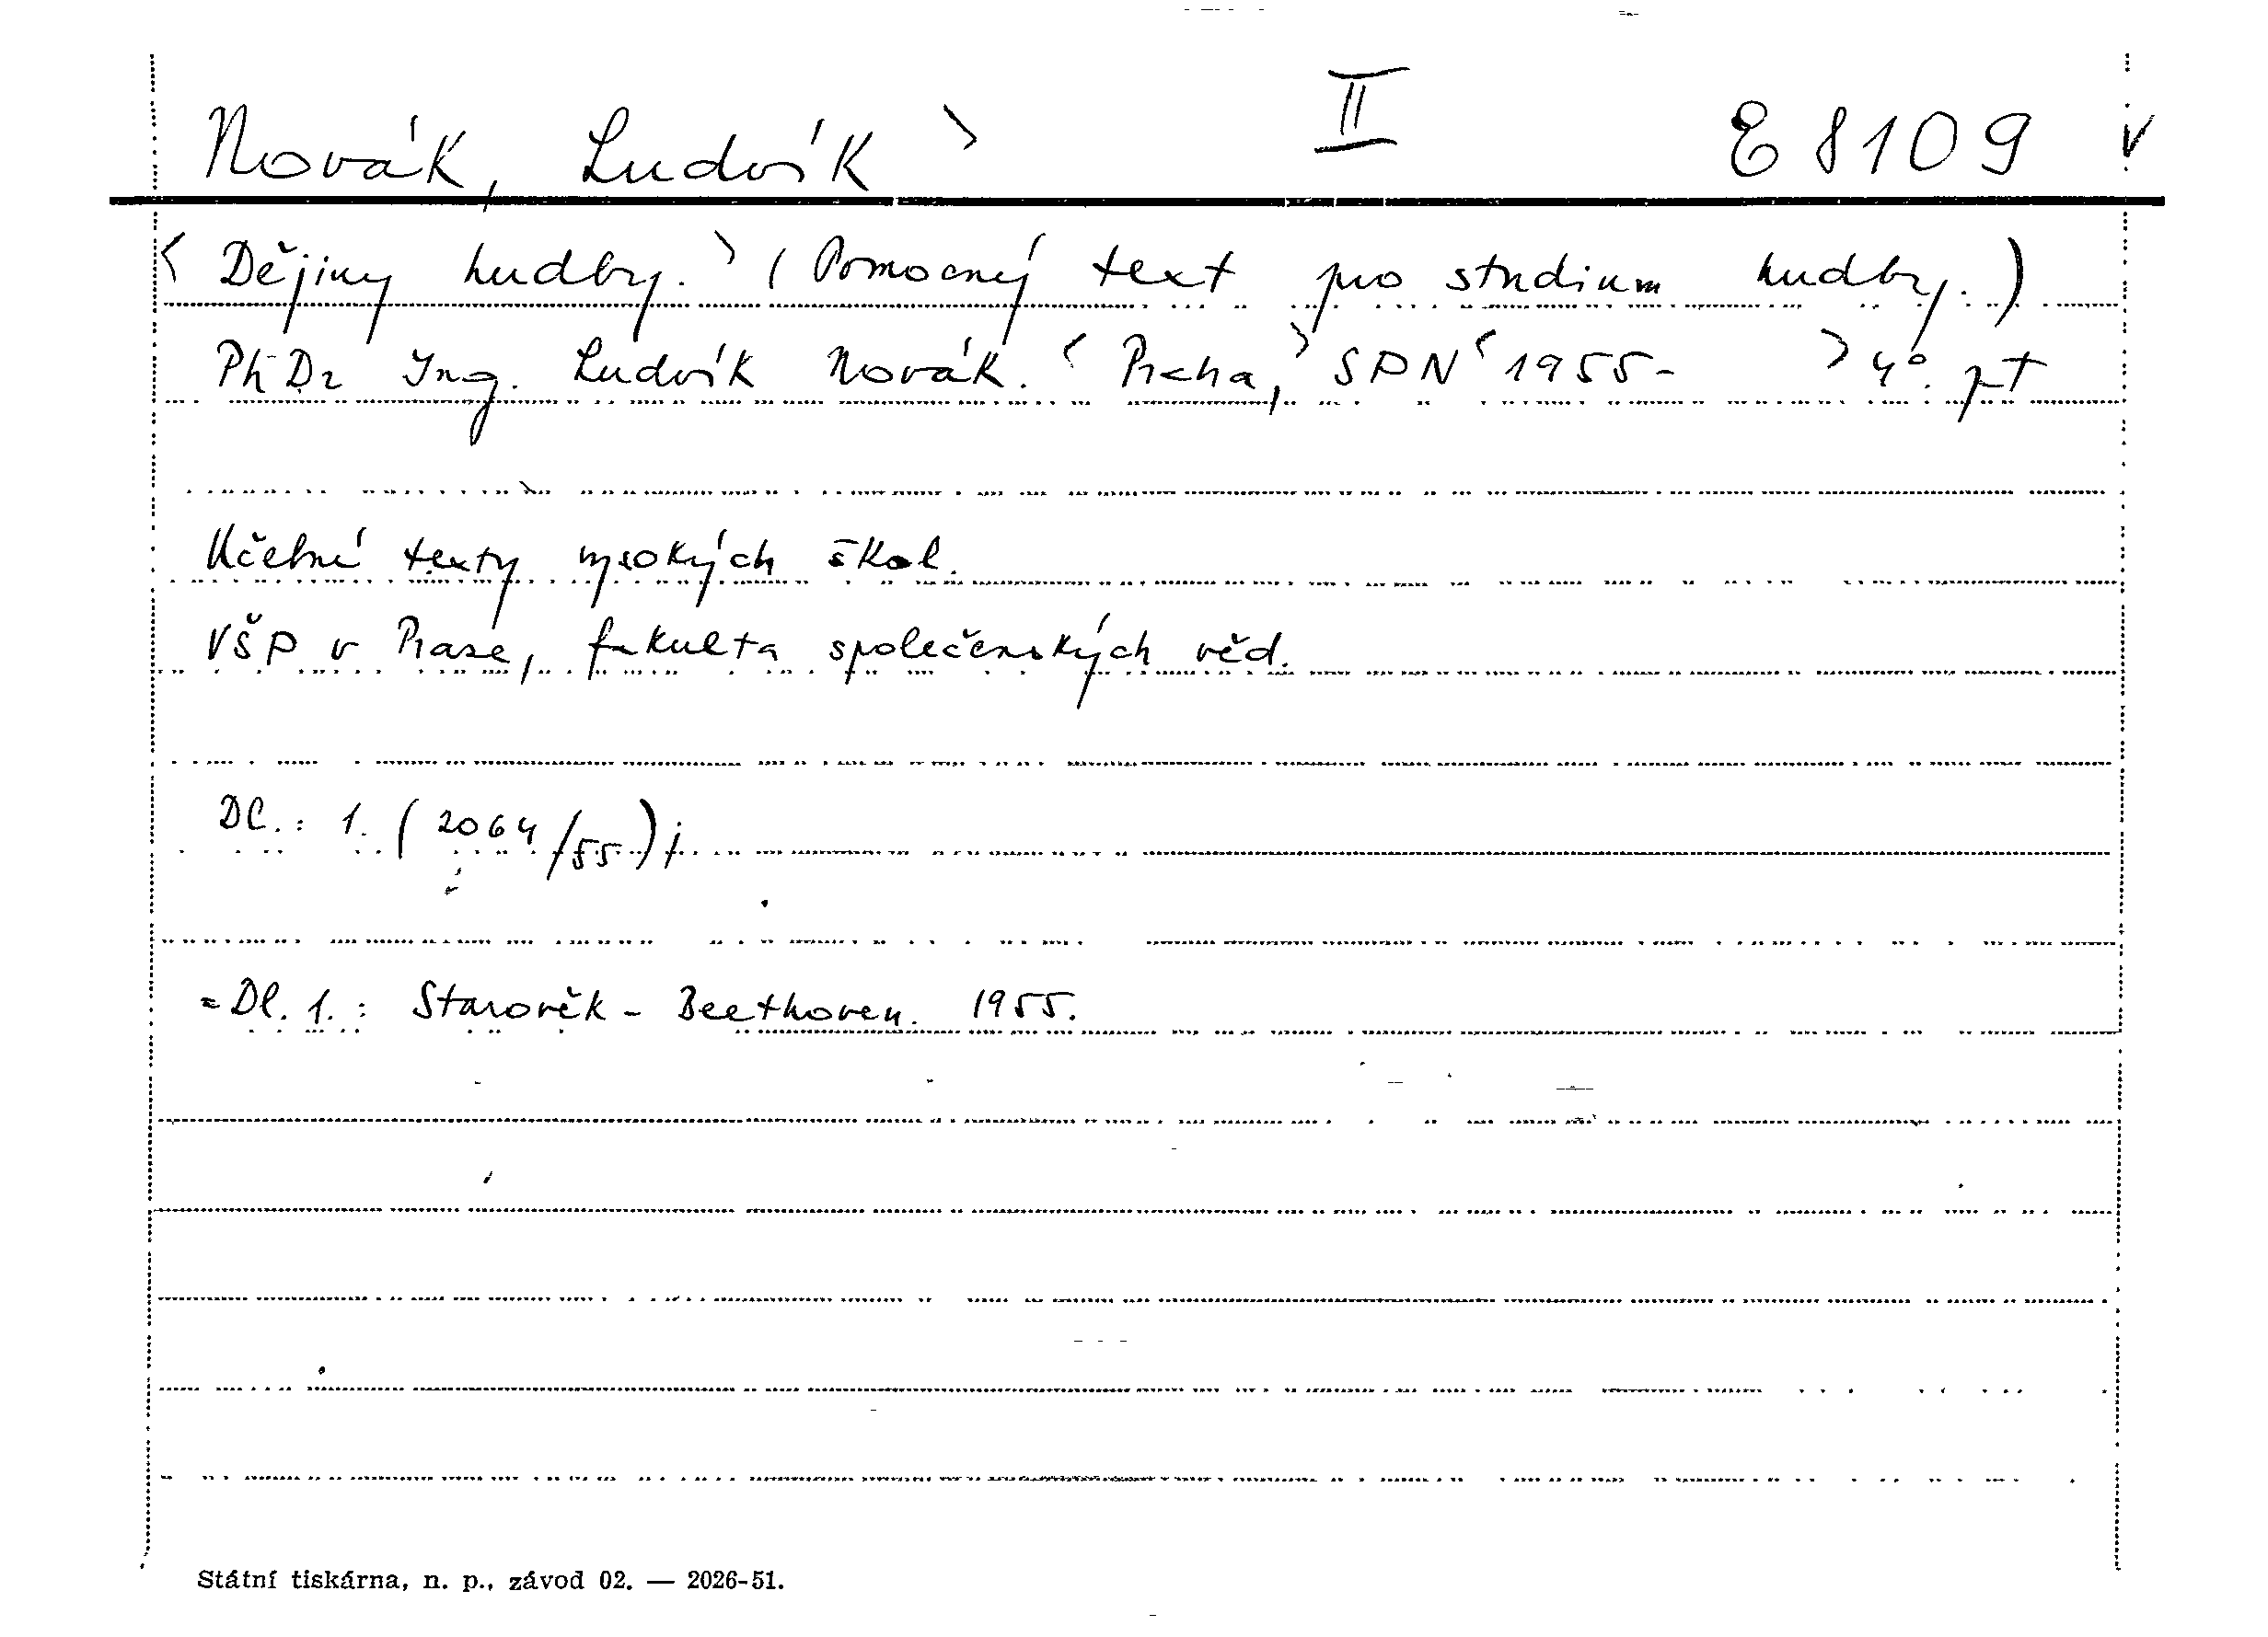 Novák, Ludvík > II E 8109 v
< Dějiny hudby. > ( Pomocný text pro studium hudby. )
PhDr Ing. Ludvík Novák. < Praha, > SPN < 1955- > 4°. pt
Učební texty vysokých škol.
VŠP v Praze, fakulta společenských věd.
DC.: 1. ( 2064/55 );
= Dl. 1.: Starověk - Beethoven. 1955.
Státní tiskárna, n. p., závod 02. — 2026-51.